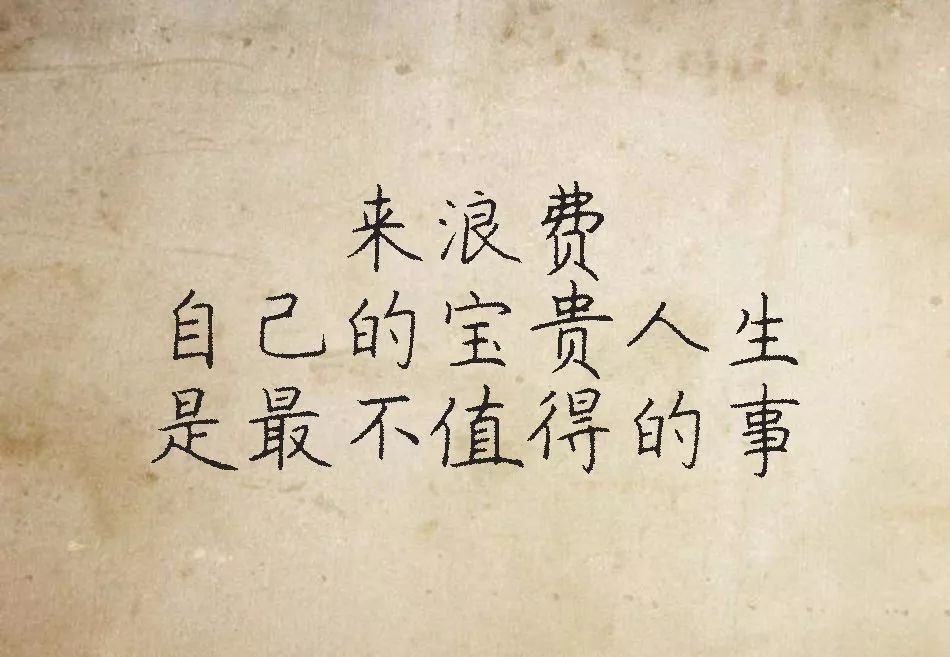 来浪费
自己的宝贵人生
是最不值得的事